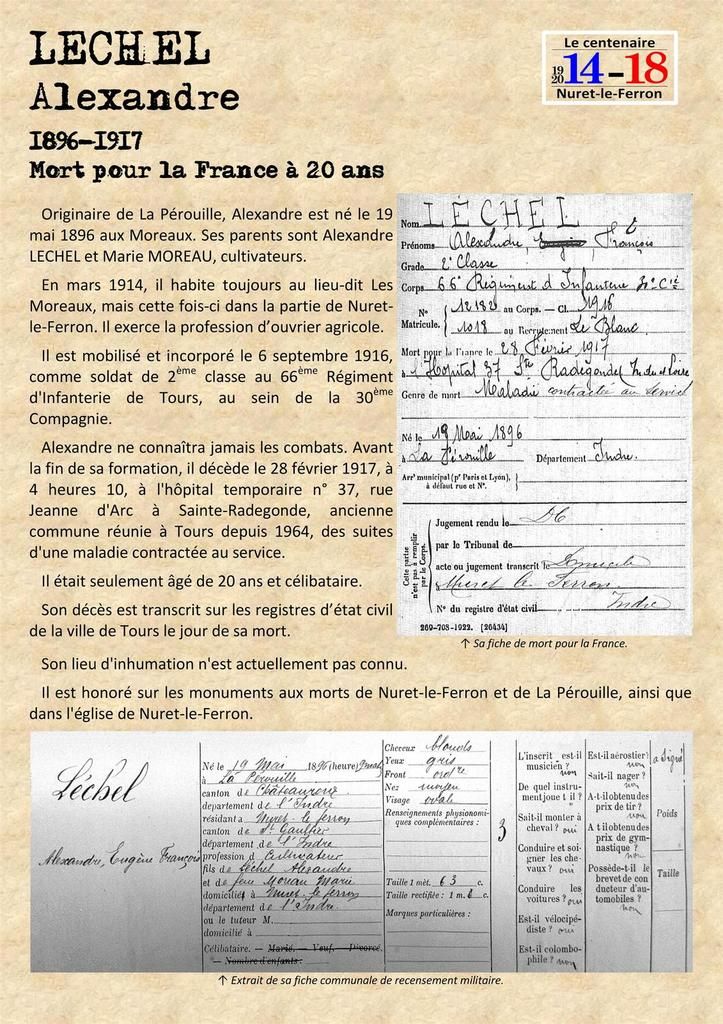 LECHEL
Alexandre
1896-1917
Mort pour la France à 20 ans
Le centenaire
1920 14-18
Nuret-le-Ferron
Originaire de La Pérouille, Alexandre est né le 19
mai 1896 aux Moreaux. Ses parents sont Alexandre
LECHEL et Marie MOREAU, cultivateurs.
En mars 1914, il habite toujours au lieu-dit Les
Moreaux, mais cette fois-ci dans la partie de Nuret-
le-Ferron. Il exerce la profession d'ouvrier agricole.
Il est mobilisé et incorporé le 6 septembre 1916,
comme soldat de 2ème classe au 66ème Régiment
d'Infanterie de Tours, au sein de la 30ème
Compagnie.
Alexandre ne connaîtra jamais les combats. Avant
la fin de sa formation, il décède le 28 février 1917, à
4 heures 10, à l'hôpital temporaire n° 37, rue
Jeanne d'Arc à Sainte-Radegonde, ancienne
commune réunie à Tours depuis 1964, des suites
d'une maladie contractée au service.
Il était seulement âgé de 20 ans et célibataire.
Son décès est transcrit sur les registres d'état civil
de la ville de Tours le jour de sa mort.
Nom LÉCHEL
Prénoms Alexandre François
Grade 2e Classe
Corps 66e Régiment d'Infanterie 30e Cie
N° Matricule. 12182 au Corps. — Cl. 1916
1018 au Recrutement Le Blanc
Mort pour la France le 28 Février 1917
à l'Hopital 37 Ste Radégonde Indre et Loire
Genre de mort Maladie contractée au service
Né le 19 Mai 1896
à La Pérouille Département Indre
Arrt municipal (pr Paris et Lyon),
à défaut rue et N°.
Cette partie n'est pas à remplir par le Corps.
Jugement rendu le
par le Tribunal de
acte ou jugement transcrit le
à Nuret le Ferron
N° du registre d'état civil Indre
269-708-1922. [26434]
↑ Sa fiche de mort pour la France.
Son lieu d'inhumation n'est actuellement pas connu.
Il est honoré sur les monuments aux morts de Nuret-le-Ferron et de La Pérouille, ainsi que
dans l'église de Nuret-le-Ferron.
Léchel
Alexandre, Eugène François
Né le 19 Mai 1896 (heure)
à La Pérouille
canton de Châteauroux
département de l'Indre
résidant à Nuret-le-ferron
canton de St Gaultier
département de l'Indre
profession de Cultivateur
fils de Léchel Alexandre
et de feue Moreau Marie
domiciliés à Nuret-le ferron
département de l'Indre
ou le tuteur M.
domicilié à
Célibataire. — Marié. — Veuf. — Divorcé.
— Nombre d'enfants.
Cheveux blonds
Yeux gris
Front ordre
Nez moyen
Visage ovale
Renseignements physionomi-
ques complémentaires :
Taille 1 mèt. 63 c.
Taille rectifiée : 1 m. c.
Marques particulières :
3
L'inscrit est-il
musicien ? non
De quel instru-
ment joue t il ?
Sait-il monter à
cheval ? oui
Conduire et soi-
gner les che-
vaux ? oui
Conduire les
voitures ? oui
Est-il vélocipé-
diste ? oui
Est-il colombo-
phile ? non
Est-il aérostier ?
non
Sait-il nager ?
non
A-t-il obtenu des
prix de tir ?
non
A t il obtenu des
prix de gym-
nastique ?
non
Possède-t-il le
brevet de con
ducteur d'au-
tomobiles ?
non
a signé
Poids
Taille
↑ Extrait de sa fiche communale de recensement militaire.